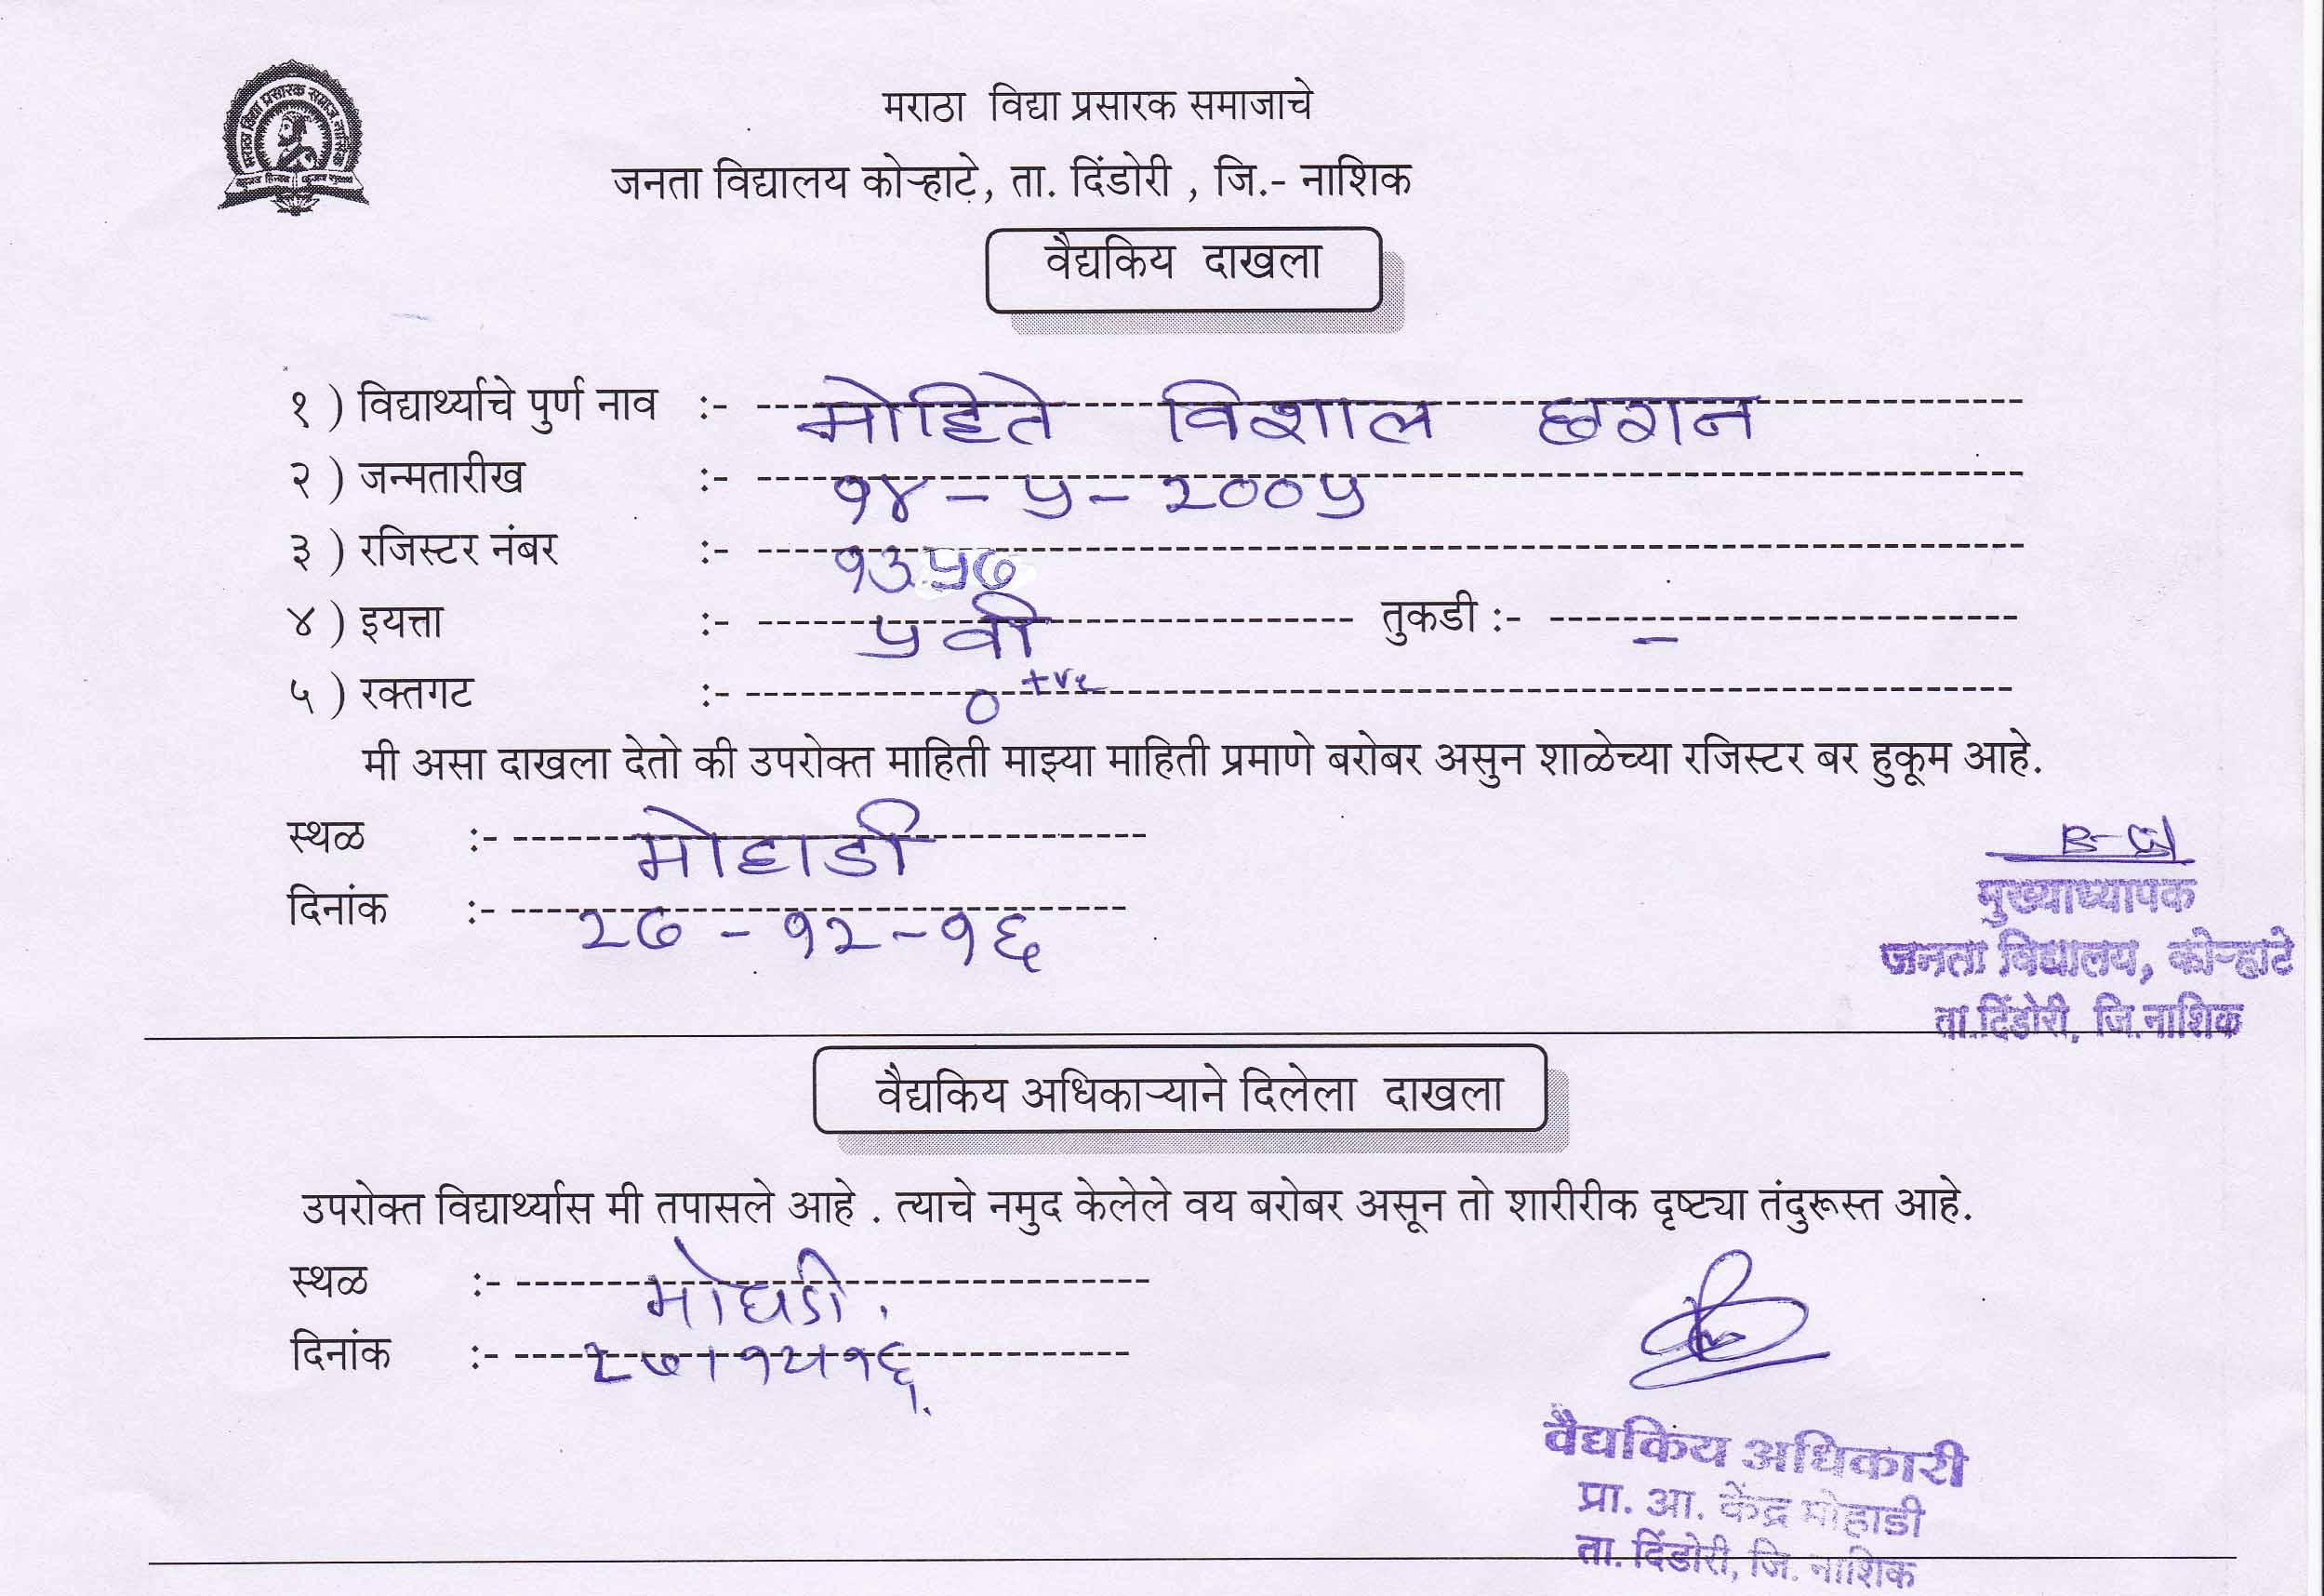 मराठा विद्या प्रसारक समाज, नाशिक
मराठा विद्या प्रसारक समाजाचे
जनता विद्यालय कोऱ्हाटे, ता. दिंडोरी , जि.- नाशिक
वैद्यकिय दाखला
१ ) विद्यार्थ्याचे पुर्ण नाव :- मोहिते विशाल छगन
२ ) जन्मतारीख :- १४ - ५ - २००५
३ ) रजिस्टर नंबर :- १३५७
४ ) इयत्ता :- ५ वी तुकडी :- –
५ ) रक्तगट :- O +ve
मी असा दाखला देतो की उपरोक्त माहिती माझ्या माहिती प्रमाणे बरोबर असुन शाळेच्या रजिस्टर बर हुकूम आहे.
स्थळ :- मोहाडी
दिनांक :- २७ - १२ - १६
मुख्याध्यापक
जनता विद्यालय, कोऱ्हाटे
ता.दिंडोरी, जि.नाशिक
वैद्यकिय अधिकाऱ्याने दिलेला दाखला
उपरोक्त विद्यार्थ्यास मी तपासले आहे . त्याचे नमुद केलेले वय बरोबर असून तो शारीरीक दृष्ट्या तंदुरूस्त आहे.
स्थळ :- मोहाडी.
दिनांक :- २७।१२।१६
वैद्यकिय अधिकारी
प्रा. आ. केंद्र मोहाडी
ता. दिंडोरी, जि. नाशिक